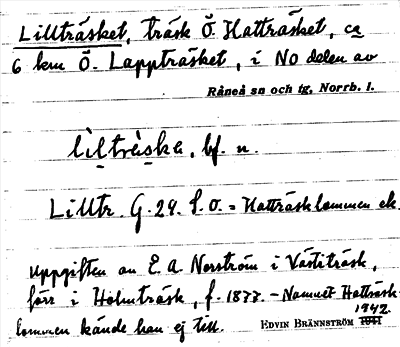 Lillträsket, träsk Ö. Hatträsket, ca
6 km Ö. Lappträsket, i NO delen av
Råneå sn och tg, Norrb. l.
lìltràska, bf. n.
Lilltr. G. 29. S. O. = Hatträsklommen ek.
Uppgiften av E. A. Norström i Västiträsk,
förr i Holmträsk, f. 1877. - Namnet Hatträsk-
lommen kände han ej till.
EDVIN BRÄNNSTRÖM 1942.